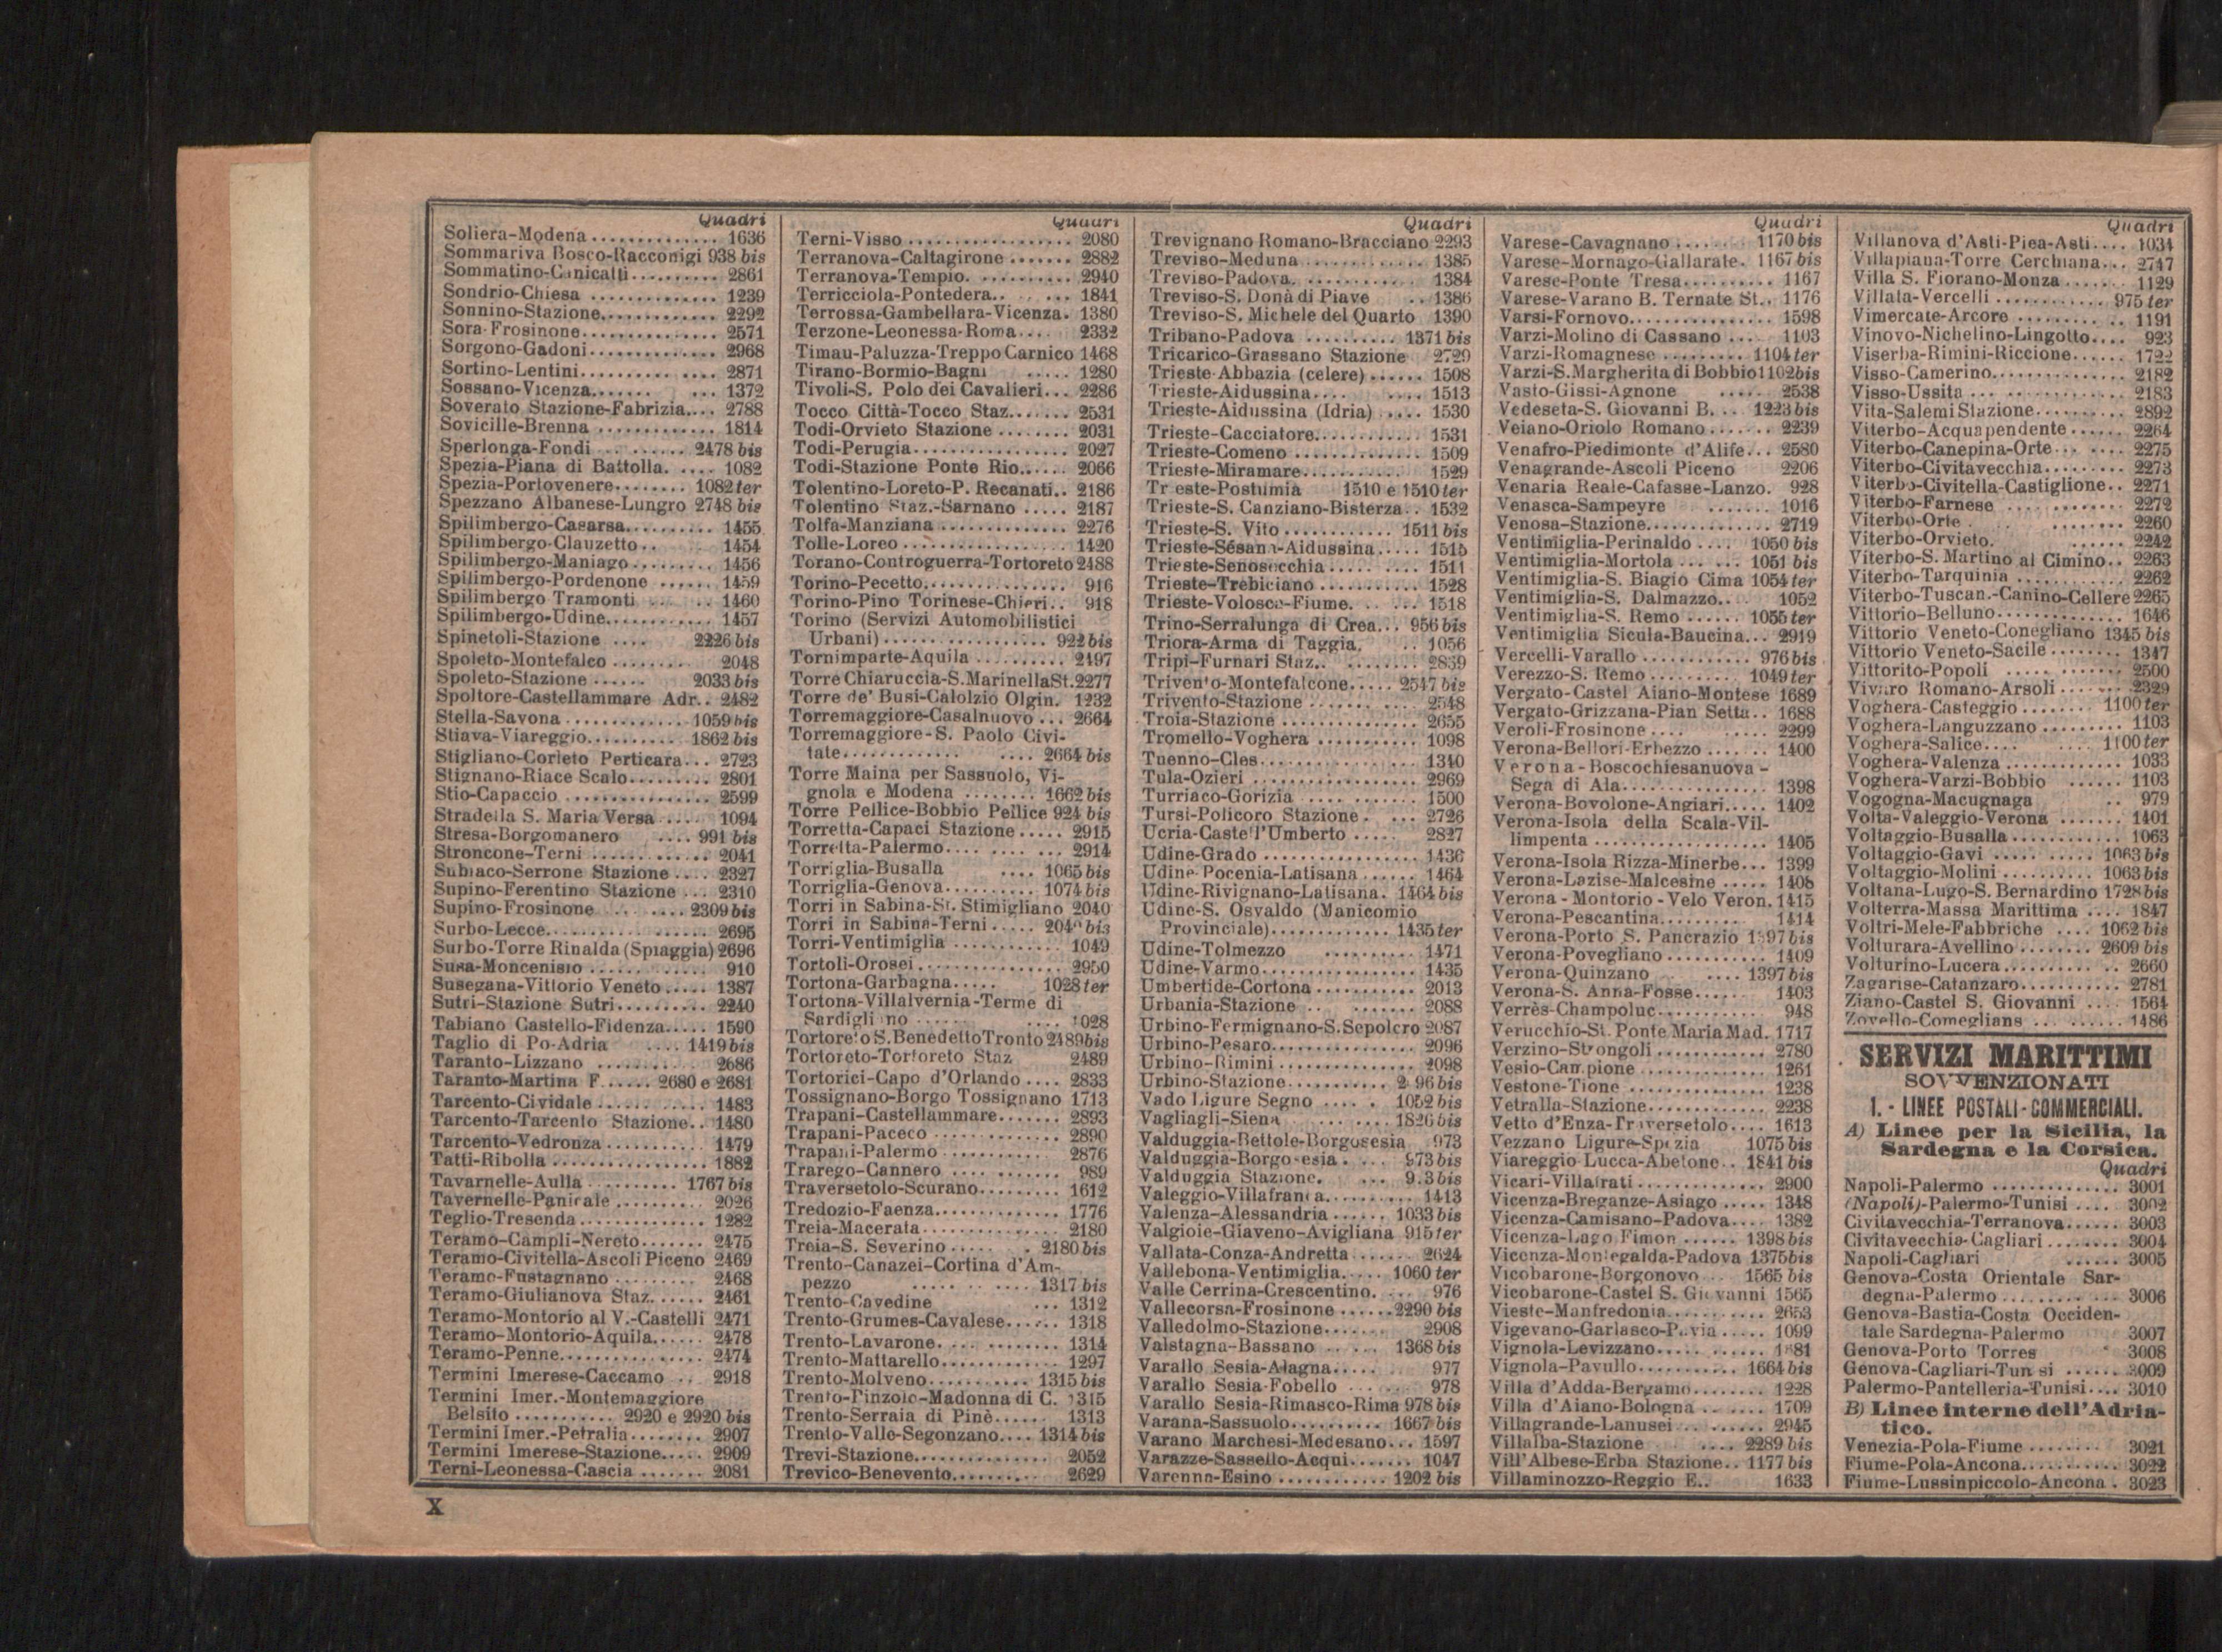 Quadri
Soliera-Modena .............. 1636
Sommariva Bosco-Racconigi 938 bis
Sommatino-Canicatti.......... 2861
Sondrio-Chiesa .............. 1239
Sonnino-Stazione............. 2292
Sora-Frosinone............... 2571
Sorgono-Gadoni.............. 2968
Sortino-Lentini.............. 2871
Sossano-Vicenza....... ... 1372
Soverato Stazione-Fabrizia.... 2788
Sovicille-Brenna ............. 1814
Sperlonga-Fondi ...... 2478 bis
Spezia-Piana di Battolla. .... 1082
Spezia-Portovenere........ 1082 ter
Spezzano Albanese-Lungro 2748 bis
Spilimbergo-Casarsa.......... 1455
Spilimbergo-Clauzetto.. 1454
Spilimbergo-Maniago......... 1456
Spilimbergo-Pordenone ...... 1459
Spilimbergo Tramonti .. .. 1460
Spilimbergo-Udine............ 1457
Spinetoli-Stazione .... 2226 bis
Spoleto-Montefalco ......... 2048
Spoleto-Stazione ...... 2033 bis
Spoltore-Castellammare Adr.. 2482
Stella-Savona ............. 1059 bis
Stiava-Viareggio.......... 1862 bis
Stigliano-Corleto Perticara... 2723
Stignano-Riace Scalo......... 2801
Stio-Capaccio ................ 2599
Stradella S. Maria Versa .... 1094
Stresa-Borgomanero .... 991 bis
Stroncone-Terni ............. 2041
Subiaco-Serrone Stazione .... 2327
Supino-Ferentino Stazione ... 2310
Supino-Frosinone ........ 2309 bis
Surbo-Lecce.................. 2695
Surbo-Torre Rinalda (Spiaggia) 2696
Susa-Moncenisio ...... ...... 910
Susegana-Vittorio Veneto ..... 1387
Sutri-Stazione Sutri.......... 2240
Tabiano Castello-Fidenza..... 1590
Taglio di Po-Adria .... 1419 bis
Taranto-Lizzano ........... 2686
Taranto-Martina F...... 2680 e 2681
Tarcento-Cividale ............ 1483
Tarcento-Tarcento Stazione.. 1480
Tarcento-Vedronza........... 1479
Tatti-Ribolla ................. 1882
Tavarnelle-Aulla .......... 1767 bis
Tavernelle-Panicale .......... 2026
Teglio-Tresenda.............. 1282
Teramo-Campli-Nereto....... 2475
Teramo-Civitella-Ascoli Piceno 2469
Teramo-Fustagnano ......... 2468
Teramo-Giulianova Staz...... 2461
Teramo-Montorio al V.-Castelli 2471
Teramo-Montorio-Aquila...... 2478
Teramo-Penne................ 2474
Termini Imerese-Caccamo .. 2918
Termini Imer.-Montemaggiore
Belsito ........... 2920 e 2920 bis
Termini Imer.-Petralia........ 2907
Termini Imerese-Stazione..... 2909
Terni-Leonessa-Cascia ....... 2081
Quadri
Terni-Visso .................. 2080
Terranova-Caltagirone ....... 2882
Terranova-Tempio. .......... 2940
Terricciola-Pontedera.. ... 1841
Terrossa-Gambellara-Vicenza. 1380
Terzone-Leonessa-Roma.... 2332
Timau-Paluzza-Treppo Carnico 1468
Tirano-Bormio-Bagni ..... 1280
Tivoli-S. Polo dei Cavalieri... 2286
Tocco Città-Tocco Staz....... 2531
Todi-Orvieto Stazione ........ 2031
Todi-Perugia................. 2027
Todi-Stazione Ponte Rio...... 2066
Tolentino-Loreto-P. Recanati.. 2186
Tolentino Staz.-Sarnano ..... 2187
Tolfa-Manziana .............. 2276
Tolle-Loreo .................. 1420
Torano-Controguerra-Tortoreto 2488
Torino-Pecetto................ 916
Torino-Pino Torinese-Chieri.. 918
Torino (Servizi Automobilistici
Urbani)................... 922 bis
Tornimparte-Aquila .......... 2497
Torre Chiaruccia-S. Marinella St. 2277
Torre de' Busi-Calolzio Olgin. 1232
Torremaggiore-Casalnuovo ... 2664
Torremaggiore-S. Paolo Civi-
tate............. .... 2664 bis
Torre Maina per Sassuolo, Vi-
gnola e Modena ........ 1662 bis
Torre Pellice-Bobbio Pellice 924 bis
Torretta-Capaci Stazione ..... 2915
Torretta-Palermo.... .... ... 2914
Torriglia-Busalla .... 1065 bis
Torriglia-Genova.......... 1074 bis
Torri in Sabina-St. Stimigliano 2040
Torri in Sabina-Terni ..... 2040 bis
Torri-Ventimiglia ............ 1049
Tortoli-Orosei................ 2950
Tortona-Garbagna..... 1028 ter
Tortona-Villalvernia-Terme di
Sardigliano ...... .... 1028
Tortoreto S. Benedetto Tronto 2489 bis
Tortoreto-Tortoreto Staz 2489
Tortorici-Capo d'Orlando .... 2833
Tossignano-Borgo Tossignano 1713
Trapani-Castellammare....... 2893
Trapani-Paceco .............. 2890
Trapani-Palermo ........... 2876
Trarego-Cannero ............ 989
Traversetolo-Scurano......... 1612
Tredozio-Faenza.............. 1776
Treia-Macerata............... 2180
Treia-S. Severino ..... . 2180 bis
Trento-Canazei-Cortina d'Am-
pezzo ........... 1317 bis
Trento-Cavedine ... 1312
Trento-Grumes-Cavalese...... 1318
Trento-Lavarone. ... ........ 1314
Trento-Mattarello............. 1297
Trento-Molveno........... 1315 bis
Trento-Pinzolo-Madonna di C. 1315
Trento-Serraia di Pinè...... 1313
Trento-Valle-Segonzano.... 1314 bis
Trevi-Stazione............... 2052
Trevico-Benevento.......... 2629
Quadri
Trevignano Romano-Bracciano 2293
Treviso-Meduna ............. 1385
Treviso-Padova. ........... 1384
Treviso-S. Donà di Piave .. 1386
Treviso-S. Michele del Quarto 1390
Tribano-Padova .......... 1371 bis
Tricarico-Grassano Stazione 2729
Trieste-Abbazia (celere)...... 1508
Trieste-Aidussina.... .... 1513
Trieste-Aidussina (Idria) .... 1530
Trieste-Cacciatore............ 1531
Trieste-Comeno .............. 1509
Trieste-Miramare........... 1529
Trieste-Postumia 1510 e 1510 ter
Trieste-S. Canziano-Bisterza.. 1532
Trieste-S. Vito ............ 1511 bis
Trieste-Sésana-Aidussina..... 1515
Trieste-Senosecchia..... .... 1511
Trieste-Trebiciano ........... 1528
Trieste-Volosca-Fiume. .. ... 1518
Trino-Serralunga di Crea... 956 bis
Triora-Arma di Taggia. .. 1056
Tripi-Furnari Staz.. ........ 2859
Trivento-Montefalcone..... 2547 bis
Trivento-Stazione ........... 2548
Troia-Stazione ............... 2655
Tromello-Voghera ........... 1098
Tuenno-Cles................. 1340
Tula-Ozieri .................. 2969
Turriaco-Gorizia ............ 1500
Tursi-Policoro Stazione. ... 2726
Ucria-Castell'Umberto ..... 2827
Udine-Grado ................. 1436
Udine-Pocenia-Latisana ...... 1464
Udine-Rivignano-Latisana. 1464 bis
Udine-S. Osvaldo (Manicomio
Provinciale)............. 1435 ter
Udine-Tolmezzo .......... 1471
Udine-Varmo................. 1435
Umbertide-Cortona ........... 2013
Urbania-Stazione .. ....... 2088
Urbino-Fermignano-S. Sepolcro 2087
Urbino-Pesaro................ 2096
Urbino-Rimini ............... 2098
Urbino-Stazione........... 2096 bis
Vado Ligure Segno .... . 1052 bis
Vagliagli-Siena ........ 1826 bis
Valduggia-Bettole-Borgosesia 973
Valduggia-Borgosesia. ... 973 bis
Valduggia Stazione. ... 973 bis
Valeggio-Villafranca.......... 1413
Valenza-Alessandria ...... 1033 bis
Valgioie-Giaveno-Avigliana 915 ter
Vallata-Conza-Andretta ...... 2624
Vallebona-Ventimiglia..... 1060 ter
Valle Cerrina-Crescentino. ... 976
Vallecorsa-Frosinone ......2290 bis
Valledolmo-Stazione....... 2908
Valstagna-Bassano ..... 1368 bis
Varallo Sesia-Alagna...... 977
Varallo Sesia-Fobello ...... 978
Varallo Sesia-Rimasco-Rima 978 bis
Varana-Sassuolo.......... 1667 bis
Varano Marchesi-Medesano... 1597
Varazze-Sassello-Acqui....... 1047
Varenna-Esino ............ 1202 bis
Quadri
Varese-Cavagnano ....... 1170 bis
Varese-Mornago-Gallarate. 1167 bis
Varese-Ponte Tresa.......... 1167
Varese-Varano B. Ternate St.. 1176
Varsi-Fornovo................ 1598
Varzi-Molino di Cassano .... 1103
Varzi-Romagnese ......... 1104 ter
Varzi-S. Margherita di Bobbio 1102 bis
Vasto-Gissi-Agnone ..... 2538
Vedeseta-S. Giovanni B. .. 1223 bis
Veiano-Oriolo Romano....... 2239
Venafro-Piedimonte d'Alife... 2580
Venagrande-Ascoli Piceno 2206
Venaria Reale-Cafasse-Lanzo. 928
Venasca-Sampeyre ....... 1016
Venosa-Stazione.............. 2719
Ventimiglia-Perinaldo .... 1050 bis
Ventimiglia-Mortola ... ... 1051 bis
Ventimiglia-S. Biagio Cima 1054 ter
Ventimiglia-S. Dalmazzo.. 1052
Ventimiglia-S. Remo ...... 1055 ter
Ventimiglia Sicula-Baucina... 2919
Vercelli-Varallo ............ 976 bis
Verezzo-S. Remo .......... 1049 ter
Vergato-Castel Aiano-Montese 1689
Vergato-Grizzana-Pian Setta.. 1688
Veroli-Frosinone.... ..... 2299
Verona-Bellori-Erbezzo ...... 1400
Verona-Boscochiesanuova-
Sega di Ala................ 1398
Verona-Bovolone-Angiari..... 1402
Verona-Isola della Scala-Vil-
limpenta .................. 1405
Verona-Isola Rizza-Minerbe... 1399
Verona-Lazise-Malcesine ..... 1408
Verona-Montorio-Velo Veron. 1415
Verona-Pescantina......... 1414
Verona-Porto S. Pancrazio 1397 bis
Verona-Povegliano ........... 1409
Verona-Quinzano .... 1397 bis
Verona-S. Anna-Fosse...... 1403
Verrès-Champoluc............ 948
Verucchio-St. Ponte Maria Mad. 1717
Verzino-Strongoli ............ 2780
Vesio-Campione ............. 1261
Vestone-Tione ............... 1238
Vetralla-Stazione............. 2238
Vetto d'Enza-Traversetolo.... 1613
Vezzano Ligure-Spezia 1075 bis
Viareggio-Lucca-Abetone.. 1841 bis
Vicari-Villafrati .............. 2900
Vicenza-Breganze-Asiago ..... 1348
Vicenza-Camisano-Padova.... 1382
Vicenza-Lago Fimon ...... 1398 bis
Vicenza-Montegalda-Padova 1375 bis
Vicobarone-Borgonovo .. 1565 bis
Vicobarone-Castel S. Giovanni 1565
Vieste-Manfredonia........... 2653
Vigevano-Garlasco-Pavia ..... 1099
Vignola-Levizzano..... ...... 1681
Vignola-Pavullo............ 1664 bis
Villa d'Adda-Bergamo........ 1228
Villa d'Aiano-Bologna ....... 1709
Villagrande-Lanusei ......... 2945
Villalba-Stazione .... 2289 bis
Vill'Albese-Erba Stazione.. 1177 bis
Villaminozzo-Reggio E.. 1633
Quadri
Villanova d'Asti-Piea-Asti.... 1034
Villapiana-Torre Cerchiara... 2747
Villa S. Fiorano-Monza ...... 1129
Villata-Vercelli ............ 975 ter
Vimercate-Arcore ......... .. 1191
Vinovo-Nichelino-Lingotto.... 923
Viserba-Rimini-Riccione...... 1722
Visso-Camerino............... 2182
Visso-Ussita ... ............. 2183
Vita-Salemi Stazione.......... 2892
Viterbo-Acquapendente ...... 2264
Viterbo-Canepina-Orte... .... 2275
Viterbo-Civitavecchia......... 2273
Viterbo-Civitella-Castiglione.. 2271
Viterbo-Farnese ............ 2272
Viterbo-Orte . ........ 2260
Viterbo-Orvieto. ...... 2242
Viterbo-S. Martino al Cimino.. 2263
Viterbo-Tarquinia ........... 2262
Viterbo-Tuscan.-Canino-Cellere 2265
Vittorio-Belluno.............. 1646
Vittorio Veneto-Conegliano 1345 bis
Vittorio Veneto-Sacile........ 1347
Vittorito-Popoli ........... 2500
Vivaro Romano-Arsoli ....... 2329
Voghera-Casteggio ........ 1100 ter
Voghera-Languzzano ......... 1103
Voghera-Salice.... .... 1100 ter
Voghera-Valenza ............. 1033
Voghera-Varzi-Bobbio ...... 1103
Vogogna-Macugnaga .. 979
Volta-Valeggio-Verona ....... 1401
Voltaggio-Busalla ............ 1063
Voltaggio-Gavi ........... 1063 bis
Voltaggio-Molini .......... 1063 bis
Voltana-Lugo-S. Bernardino 1728 bis
Volterra-Massa Marittima .... 1847
Voltri-Mele-Fabbriche .... 1062 bis
Volturara-Avellino ........ 2609 bis
Volturino-Lucera.......... .. 2660
Zagarise-Catanzaro........... 2781
Ziano-Castel S. Giovanni .... 1564
Zovello-Comeglians ......... 1486
SERVIZI MARITTIMI
SOVVENZIONATI
1. - LINEE POSTALI-COMMERCIALI.
A) Linee per la Sicilia, la
Sardegna e la Corsica.
Quadri
Napoli-Palermo ............. 3001
(Napoli)-Palermo-Tunisi .... 3002
Civitavecchia-Terranova...... 3003
Civitavecchia-Cagliari ........ 3004
Napoli-Cagliari ...... 3005
Genova-Costa Orientale Sar-
degna-Palermo ............ 3006
Genova-Bastia-Costa Occiden-
tale Sardegna-Palermo 3007
Genova-Porto Torres 3008
Genova-Cagliari-Tunisi ...... 3009
Palermo-Pantelleria-Tunisi.... 3010
B) Linee interne dell'Adria-
tico.
Venezia-Pola-Fiume ........ 3021
Fiume-Pola-Ancona........... 3022
Fiume-Lussinpiccolo-Ancona . 3023
X